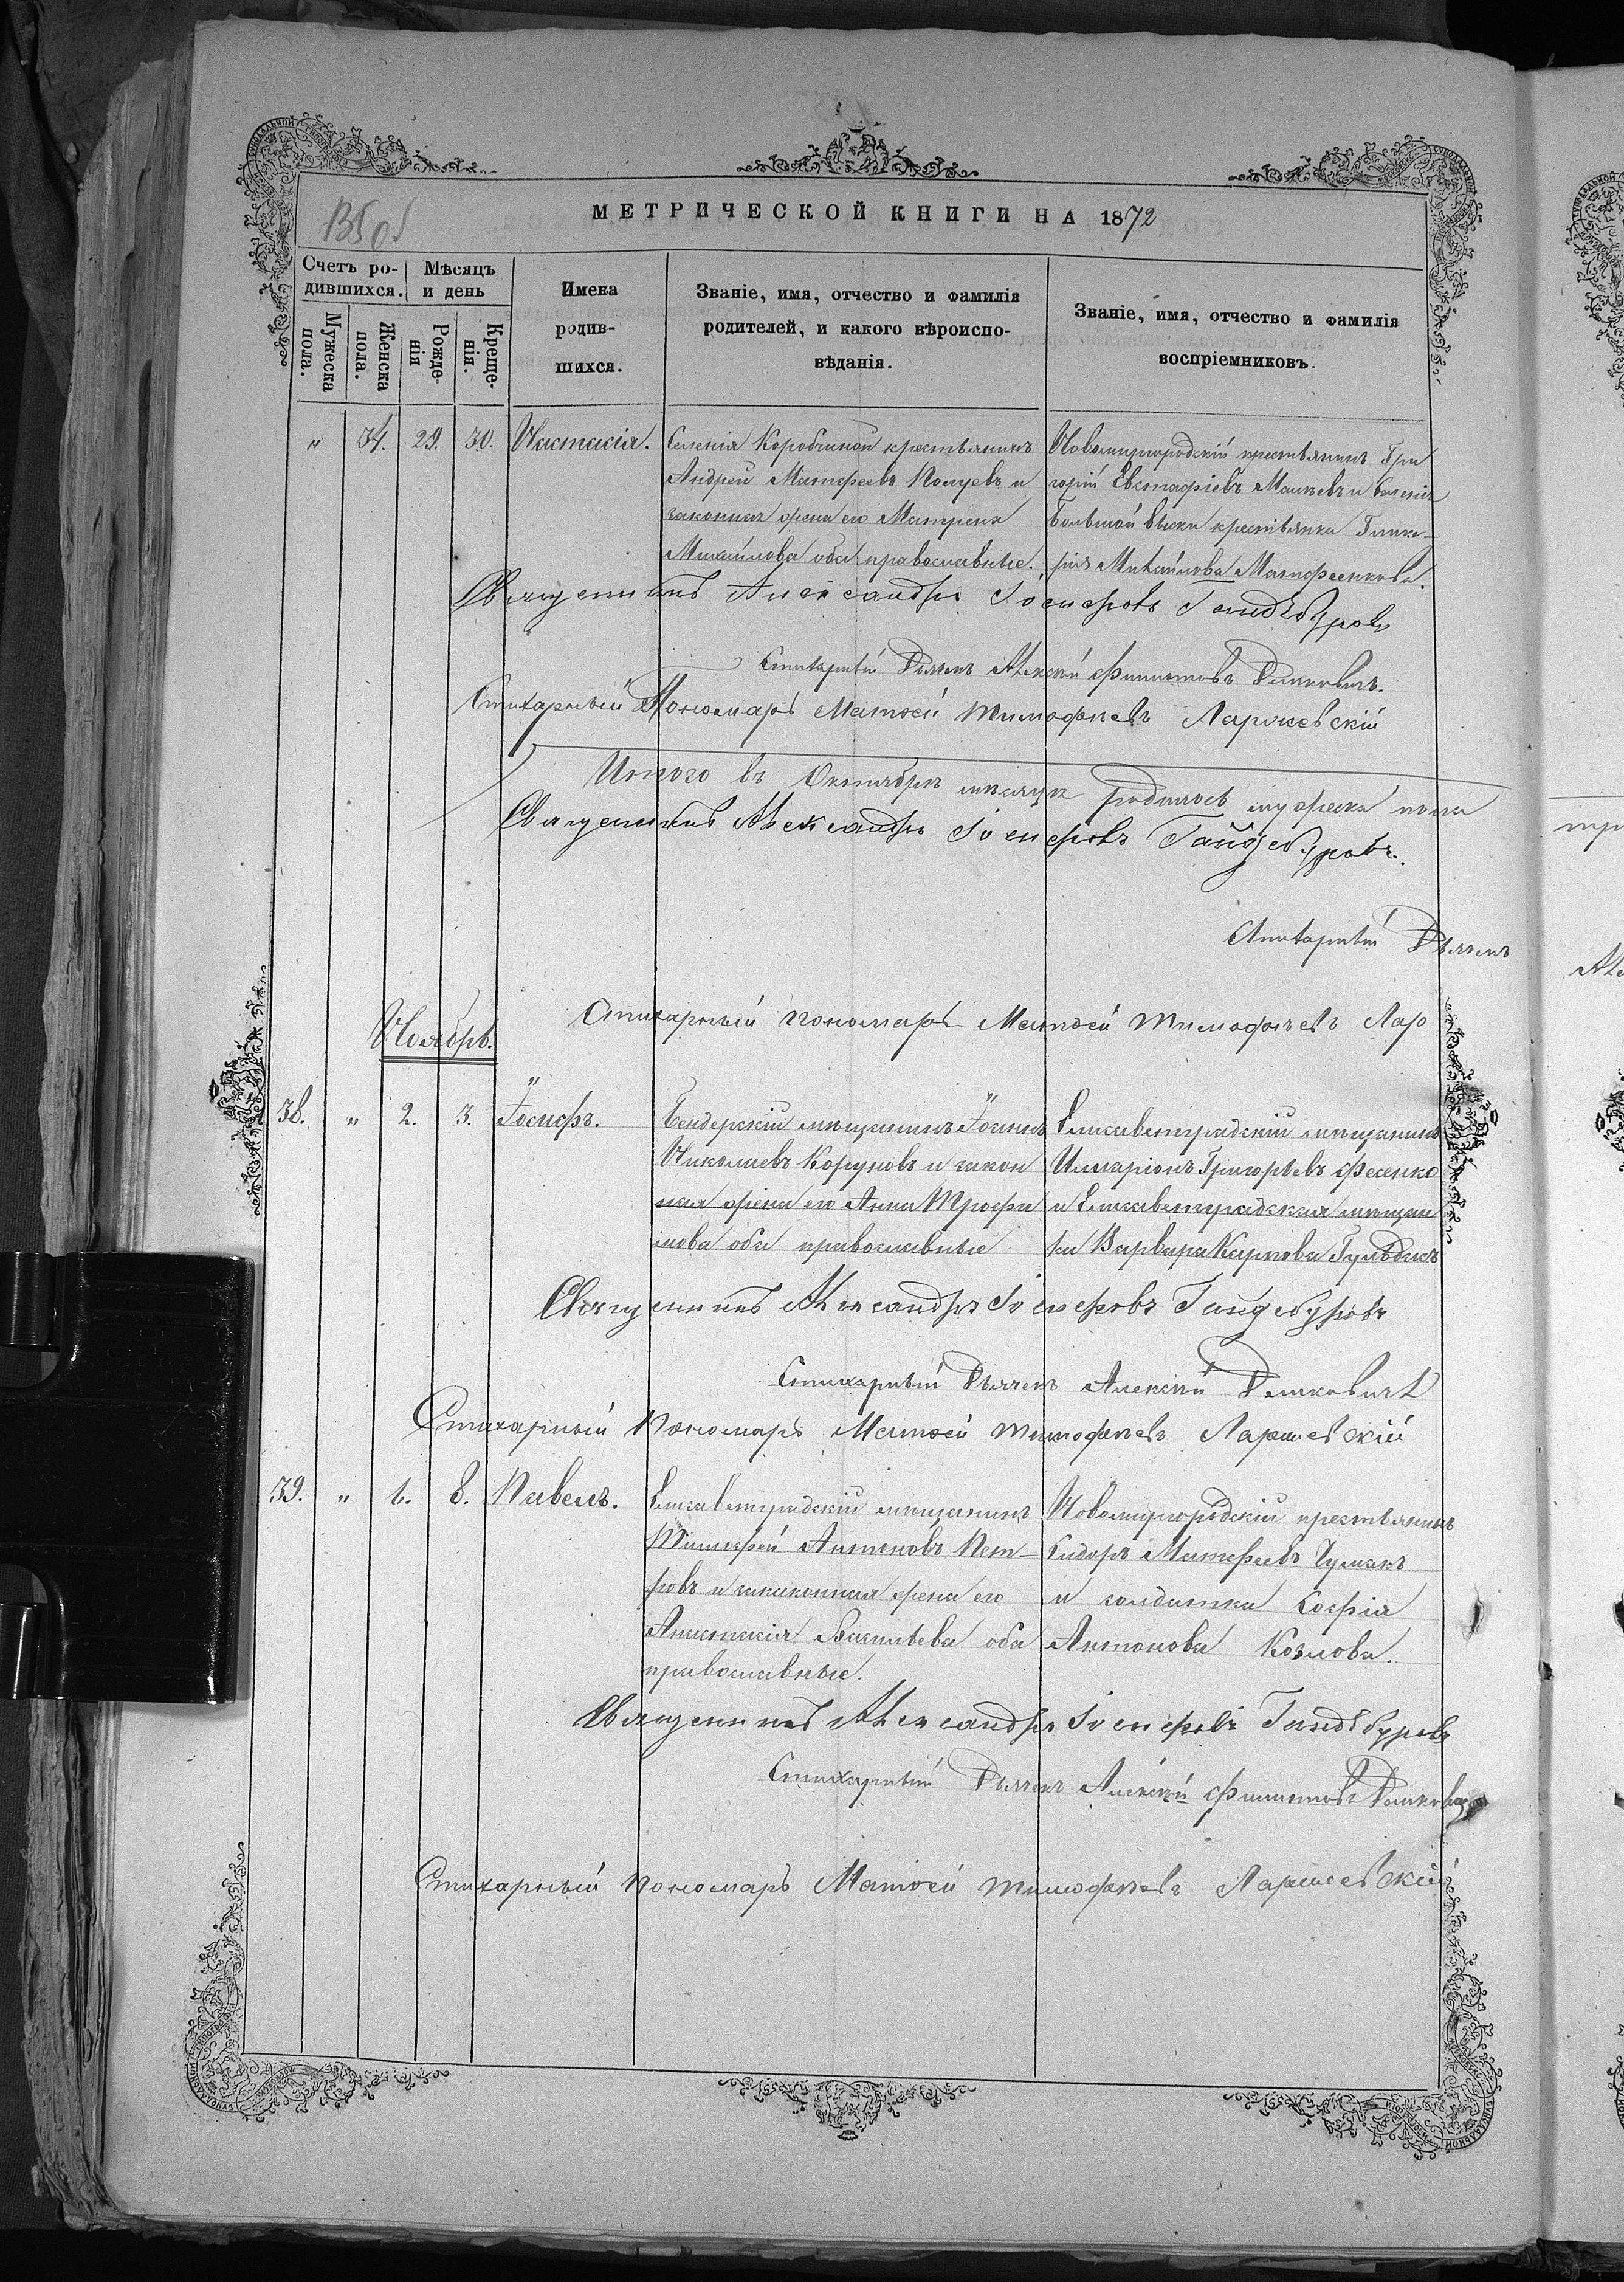 135 об
МЕТРИЧЕСКОЙ КНИГИ НА 1872
Счетъ родившихся.
Мѣсяцъ и день
Мужеска пола.
Женска пола.
Рожденія
Крещенія.
Имена родившихся.
Званіе, имя, отчество и фамилія
родителей, и какого вѣроисповѣданія.
Званіе, имя, отчество и фамилія
воспріемниковъ.
" 34. 29. 30. Настасія.
Селенія Коробчиной крестьянинъ
Андрей Матфеевъ и
законная жена его Матрена
Михайлова оба православные.
Новомиргородскій крестьянинъ Гри
горій Евстафіевъ и Селенія
Большой Виски крестьянка Глике-
рія Михайлова Матфеенкова.
Священникъ Александръ Іосифовъ Гайдебуровъ
Стихарный Дьячекъ Алексѣй Филиповъ
Стихарный Пономарь Матѳей Тимофѣевъ Ларжевскій
Итого въ Октябрѣ мѣсяцѣ родилось мужеска пола
Священникъ Александръ Іосифовъ Гайдебуровъ.
Стихарный Дьячекъ
Стихарный пономарь Матѳей Тимофѣевъ Лар
Ноябрь.
38. " 2. 3. Іосифъ.
Бендерскій мѣщанинъ Іоаннъ
Николаевъ и закон
ная жена его Анна Трофи
мова оба православные
Елисаветградскій мѣщанинъ
Иларіонъ Григорьевъ Фесенко
и Елисаветградская мѣщан
ка Варвара Карпова
Священникъ Александръ Іосифовъ Гайдебуровъ
Стихарный Дьячекъ Алексѣй
Стихарный Пономарь Матѳей Тимофѣевъ Ларжевскій
39. " 8. Павелъ.
Елисаветградскій мѣщанинъ
Тимофей Антоновъ Пет-
ровъ и законная жена его
Анастасія Васильева оба
православные.
Новомиргородскій крестьянинъ
Сидоръ Матфеевъ Чумакъ
и солдатка Софія
Антонова Козлова.
Священникъ Александръ Іосифовъ Гайдебуровъ
Стихарный Дьячекъ Алексѣй Филиповъ
Стихарный Пономарь Матѳей Тимофѣевъ Ларжевскій